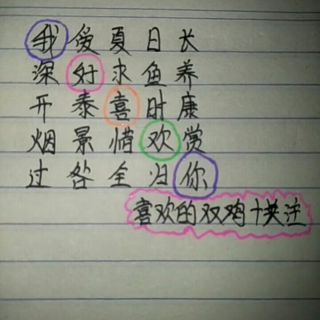 我爱夏日长
深好求鱼养
开泰喜时康
烟景惜欢赏
过咎全归你
喜欢的双鸡十关注